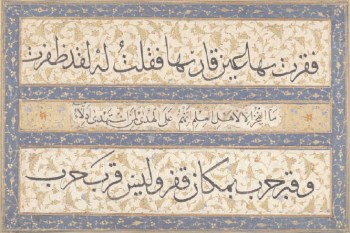 فقرت بها عين قارنها فقلت له لقد ظفرت
ما الفخر الا لاهل العلم انهم على الهدى لمن استهدى ادلاء
وقبر حرب بمكان قفر وليس قرب قبر حرب